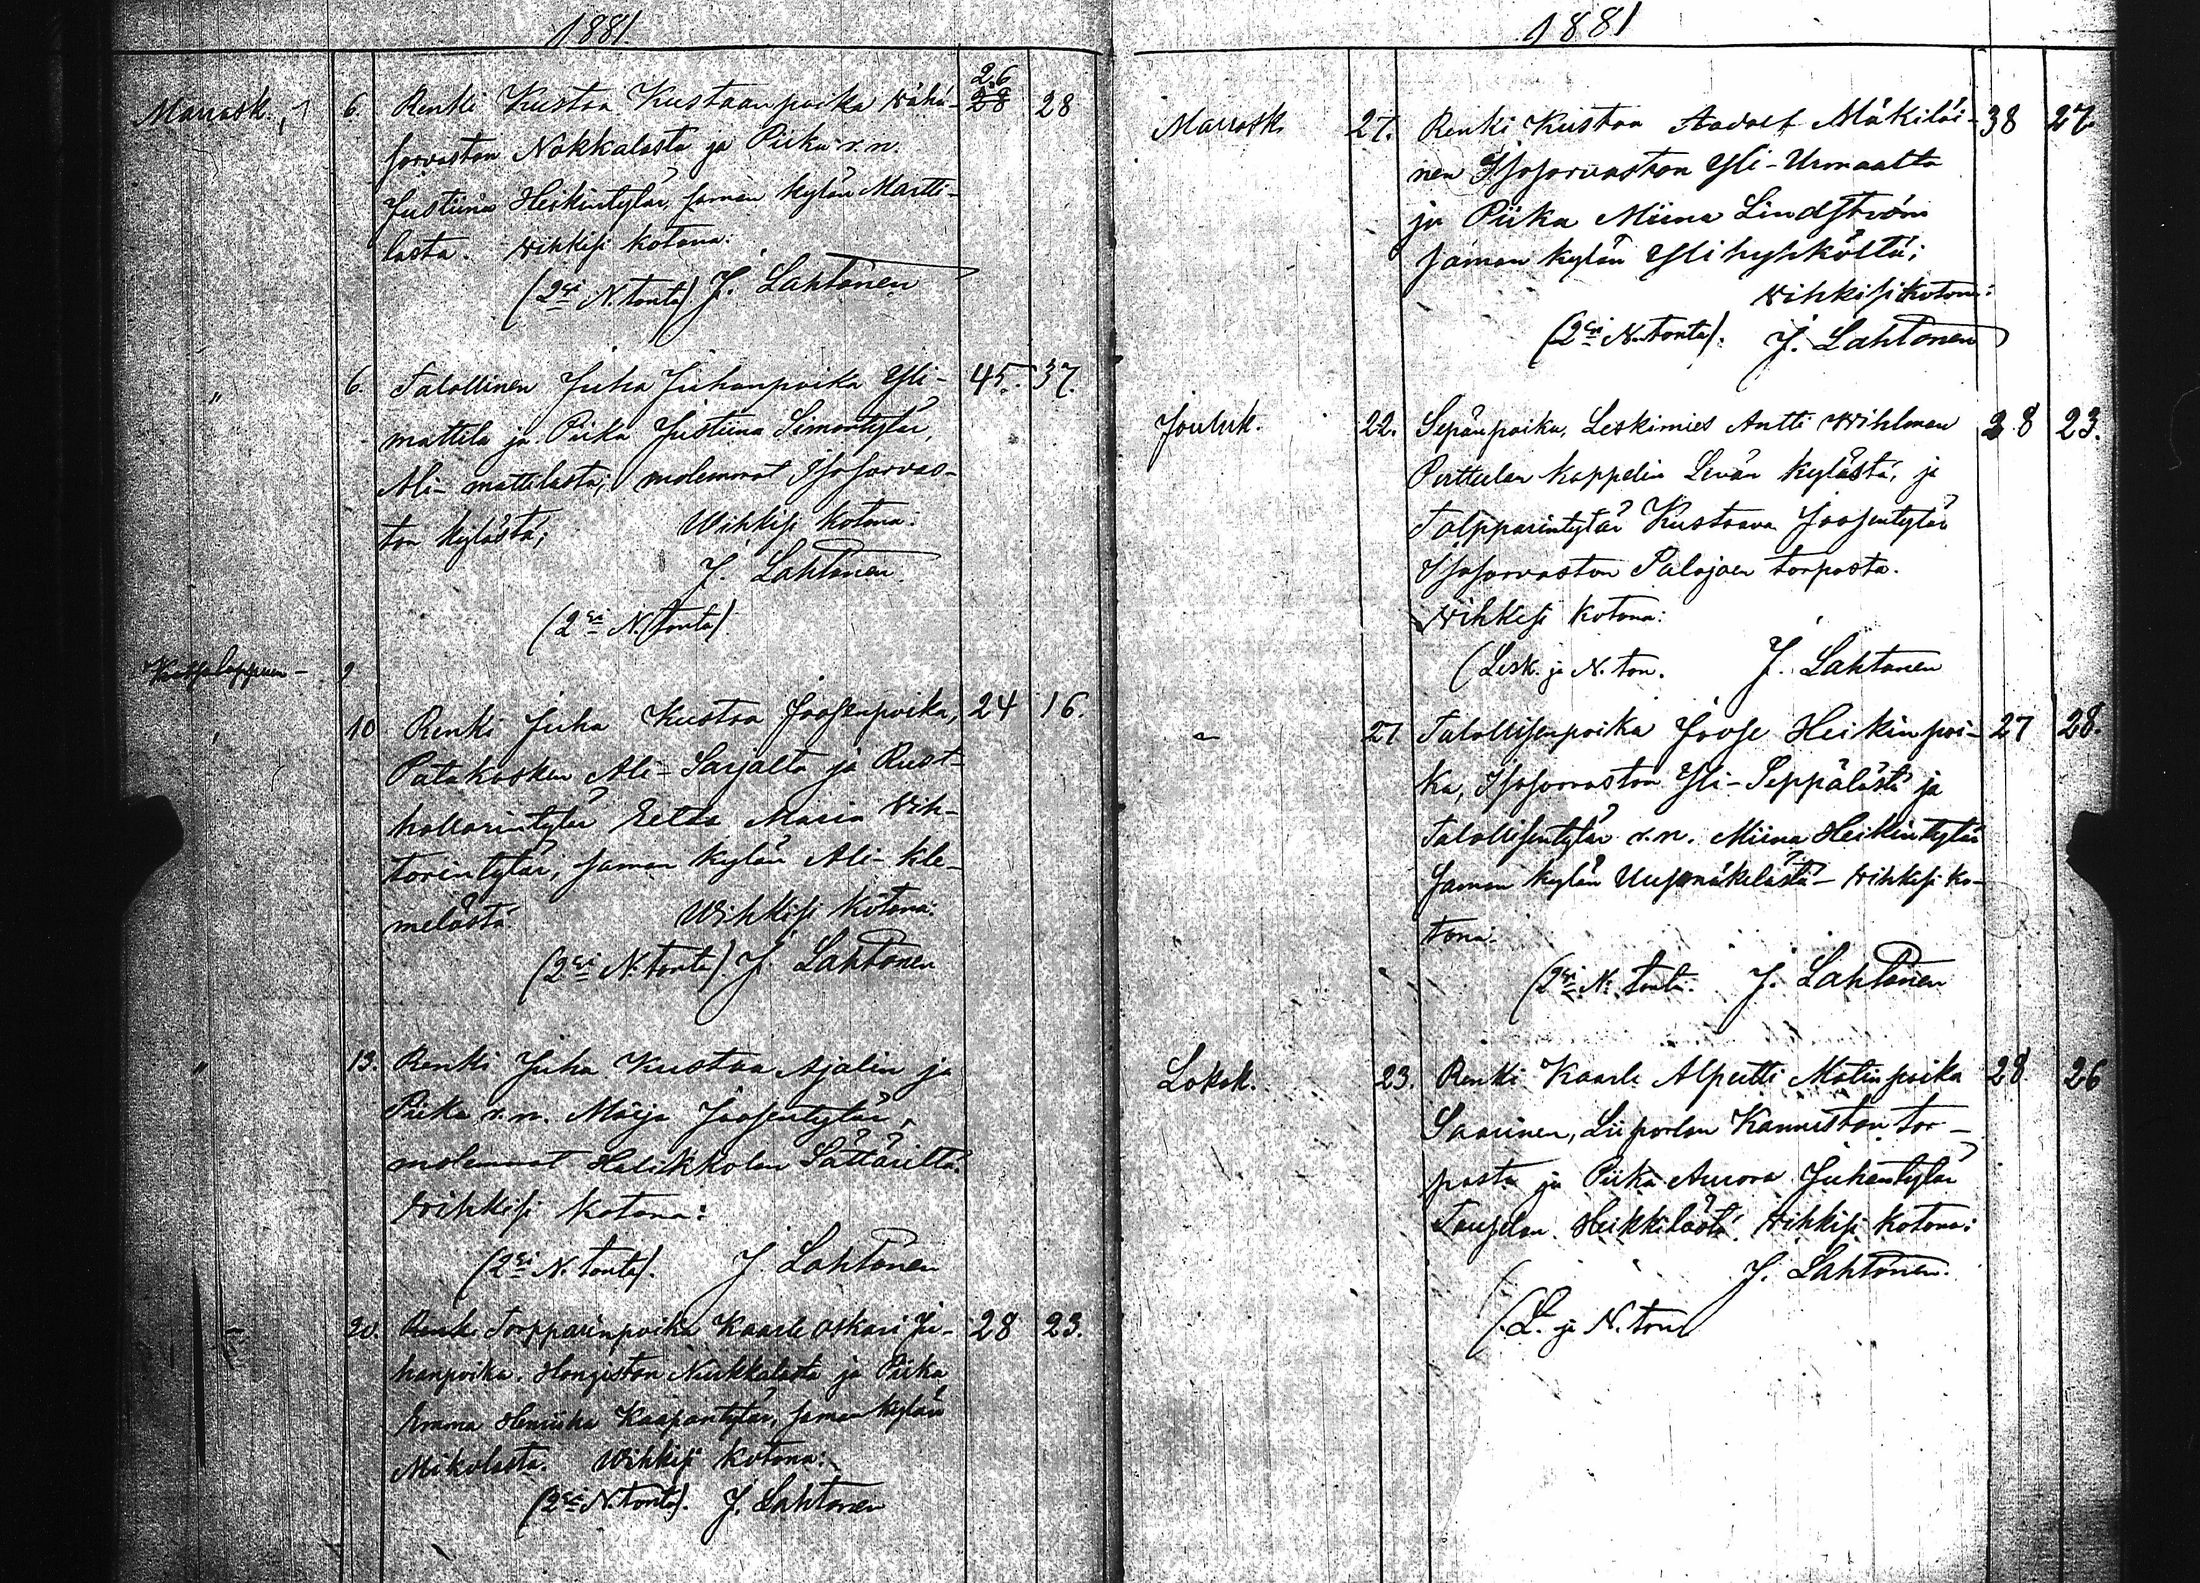 1881.
Marrask. 6. Renki Kustaa Kustaanpoika Wähä- 26 28 28
sorvaston Nokkalasta ja Piika v.n.
Justiina Heikintytär, saman kylän Martti-
lasta. Wihkisi kotona:
(2si N. tonta) J. Lahtonen
" 6. Talollinen Juha Juhanpoika Yli- 45. 37.
mattila ja Piika Justiina Simontytär,
Ali-mattilasta; molemmat Isosorvas-
ton kylästä; Wihkisi kotona:
J. Lahtonen
(2si N. tonta)
9
" 10 Renki Juha Kustaa Joosenpoika, 24 16.
Patakosken Ali-Sarjalta ja Rust-
hollarintytär Eetla Maria Wih-
torintytär, saman kylän Ali-Kle-
melästä. Wihkisi kotona:
(2si N. tonta) J. Lahtonen
" 13. Renki Juha Kustaa Ajalin ja
Piika v.n. Maija Joosentytär,
molemmat Halikkolan Sättäriltä.
Wihkisi kotona:
(2si N. tonta). J. Lahtonen
20. Renki Torpparinpoika Kaarle Oskari Ju- 28 23.
hanpoika, Hongiston Nukkalasta ja Piika
Emma Henriika Kaapontytär, saman kylän
Mikolasta. Wihkisi kotona:
(2si N. tonta). J. Lahtonen
1881
Marrask. 27. Renki Kustaa Aadolf Mäkiläi- 38 27
nen Isosorvaston Yli-Urmaalta
ja Piika Miina Lindström
saman kylän Ylihyhköltä;
Wihkisi kotona:
(2si N. tonta). J. Lahtonen
Jouluk. 22. Sepänpoika, Leskimies Antti Wihlman 28 23.
Perttulan kappelin Levän kylästä, ja
Talpparintytär Kustaava Joosentytär
Isosorvaston Palojoen torpasta.
Wihkisi kotona:
(Lesk. ja N. ton. J. Lahtonen
27 Talollisenpoika Joose Heikinpoi- 27 28.
ka, Isosorvaston Yli-Seppälästä ja
Talollisentytär v.n. Miina Heikintytär
saman kylän Uusmäkelästä - Wihkisi ko-
tona.
(2si N. tonta. J. Lahtonen
Lokak. 23. Renki Kaarle Alpertti Matinpoika 28 26
Saarinen, Liipolan Kanniston tor-
pasta ja Piika Aurora Juhantytär
Heikkilästä. Wihkisi kotona:
J. Lahtonen.
(L. ja N. ton